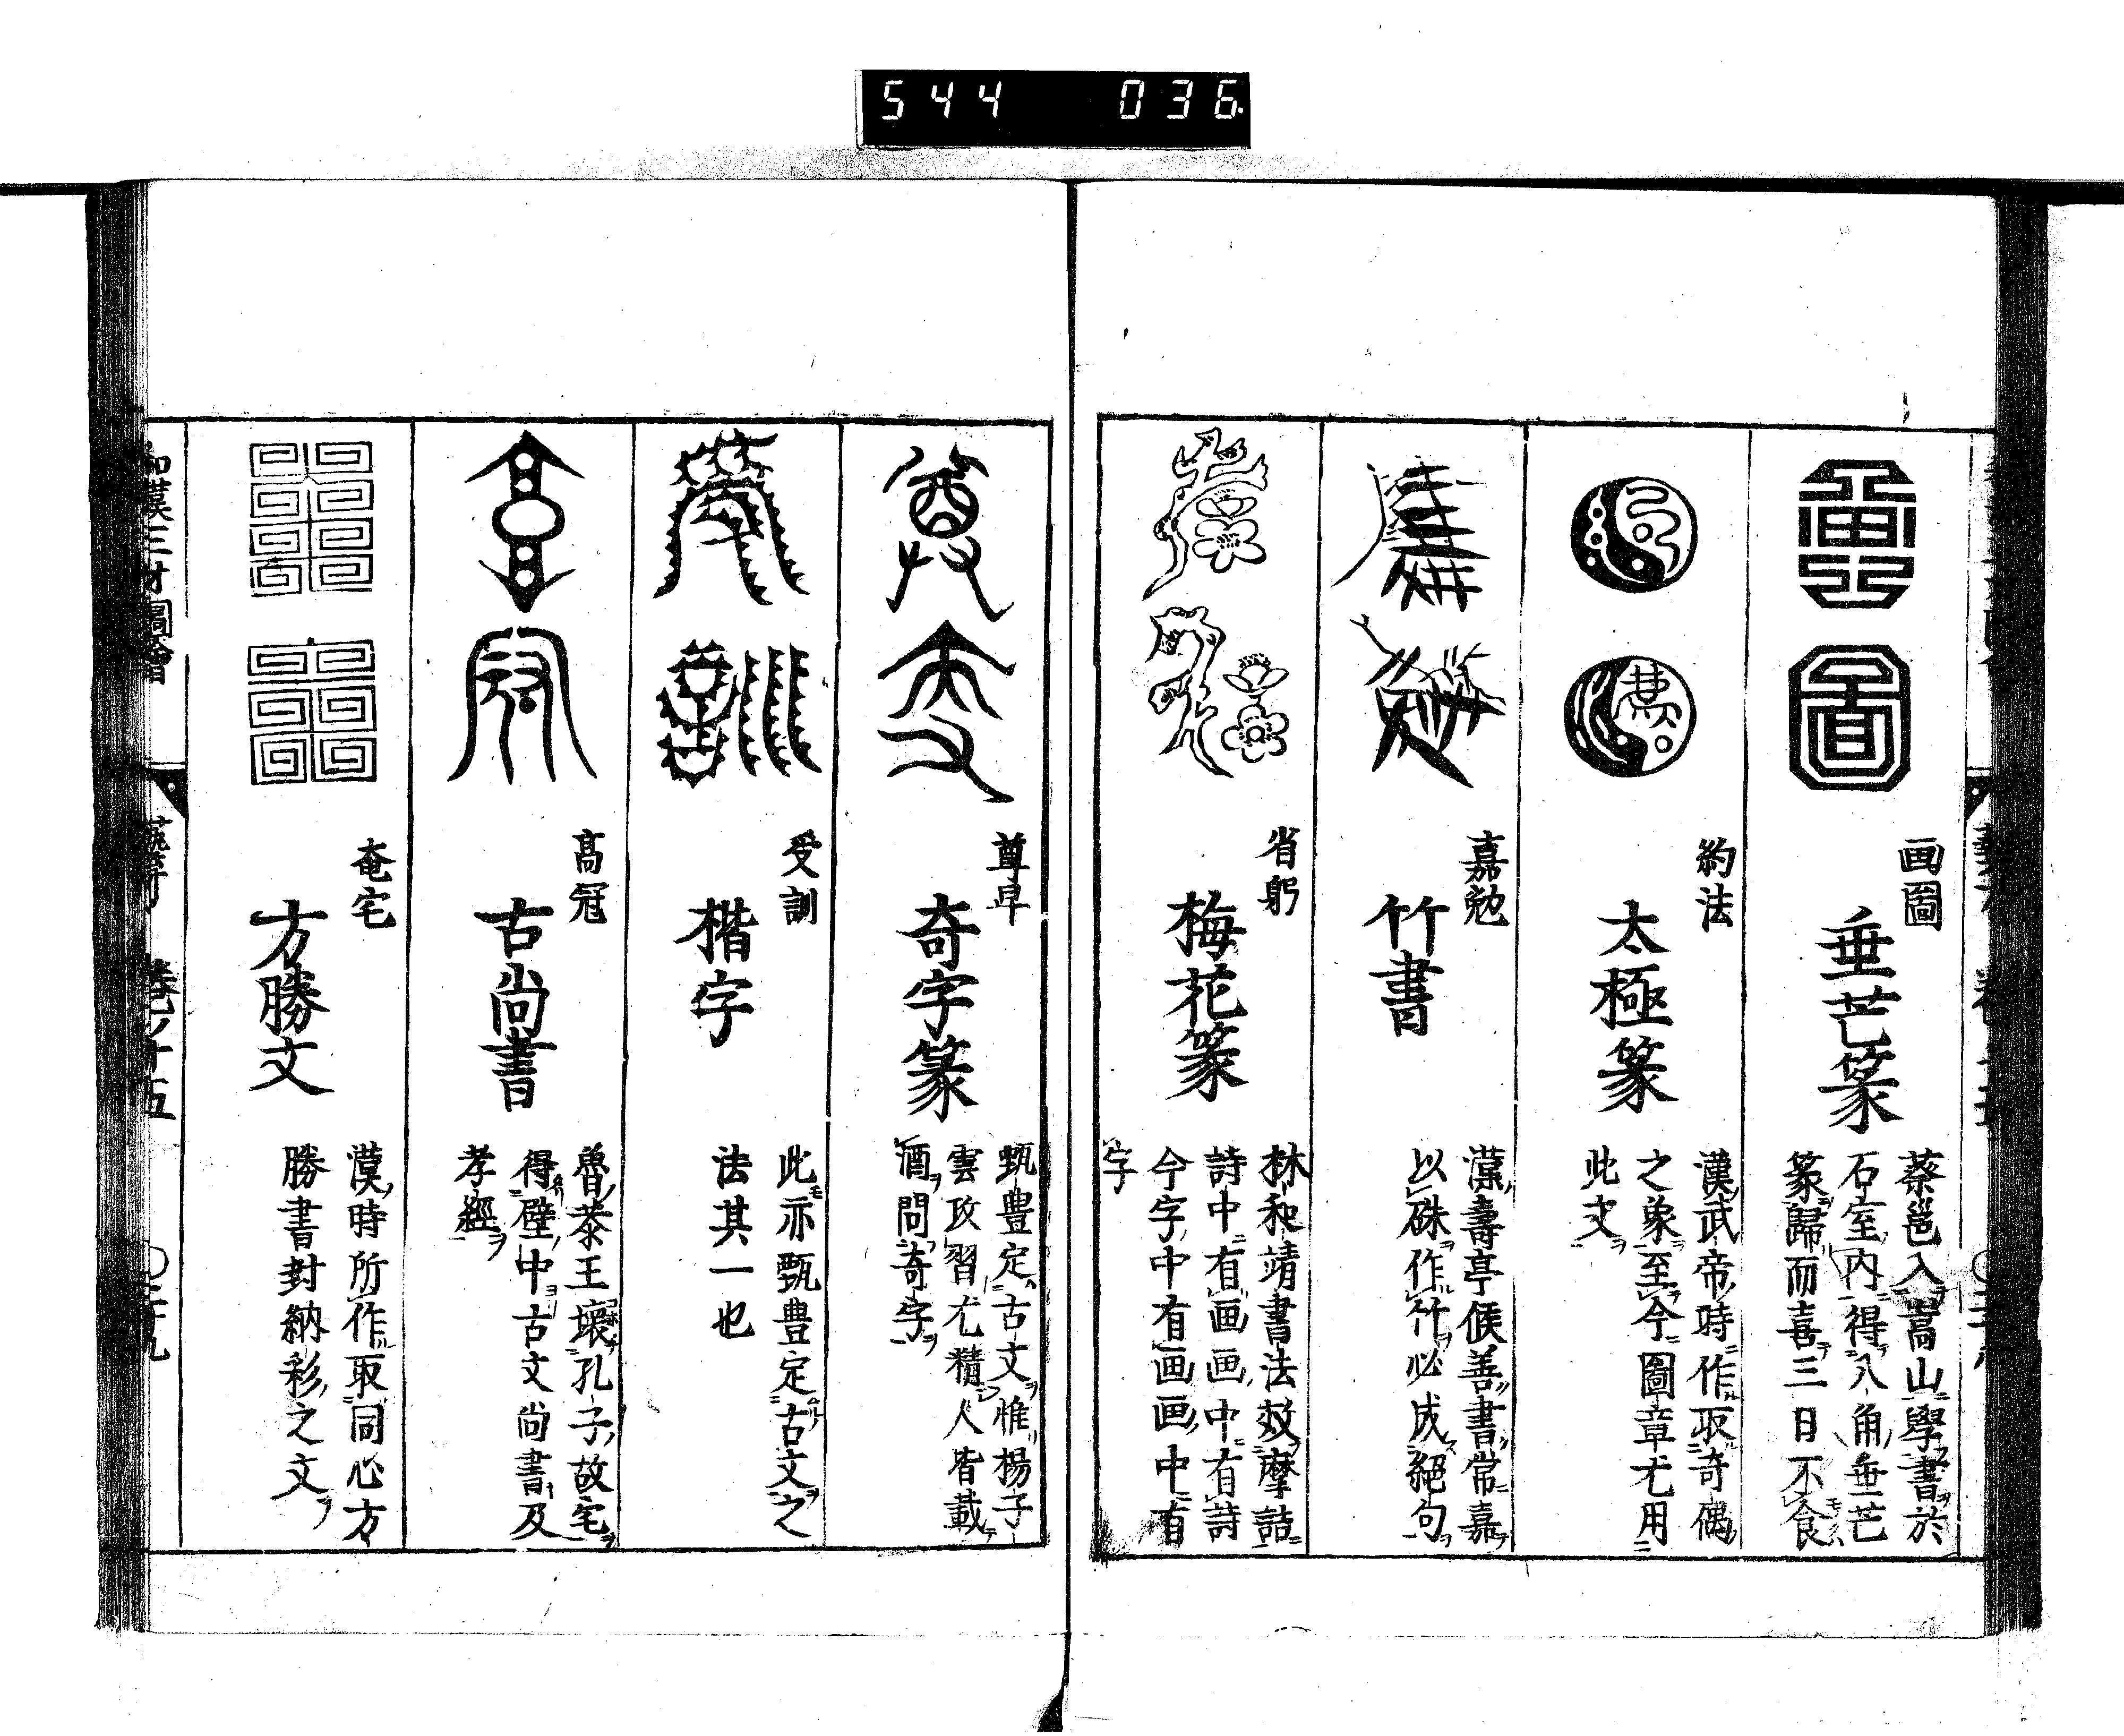 544 036
画圖
垂芒篆
蔡邕入嵩山學書於
石室内得八角垂芒
篆歸而喜三日不食
約法
太極篆
漢武帝時作取奇偶
之象至今圖章尤用
此文
嘉勉
竹書
漢壽亭侯善書常嘉
以硃作竹必成絕句
省躬
梅花篆
林和靖書法效摩詰
詩中有画画中有詩
今字中有画画中有
字
尊卑
奇字篆
甄豊定古文惟楊子
雲攻習尤精人皆載
酒問奇字
受訓
楷字
此亦甄豊定古文之
法其一也
高冠
古尚書
魯恭王壞孔子故宅
得壁中古文尚書及
孝經
奄宅
方勝文
漢時所作取同心方
勝書封納彩之文
和漢三才圖會
藝財 卷ノ十五 〇二十九